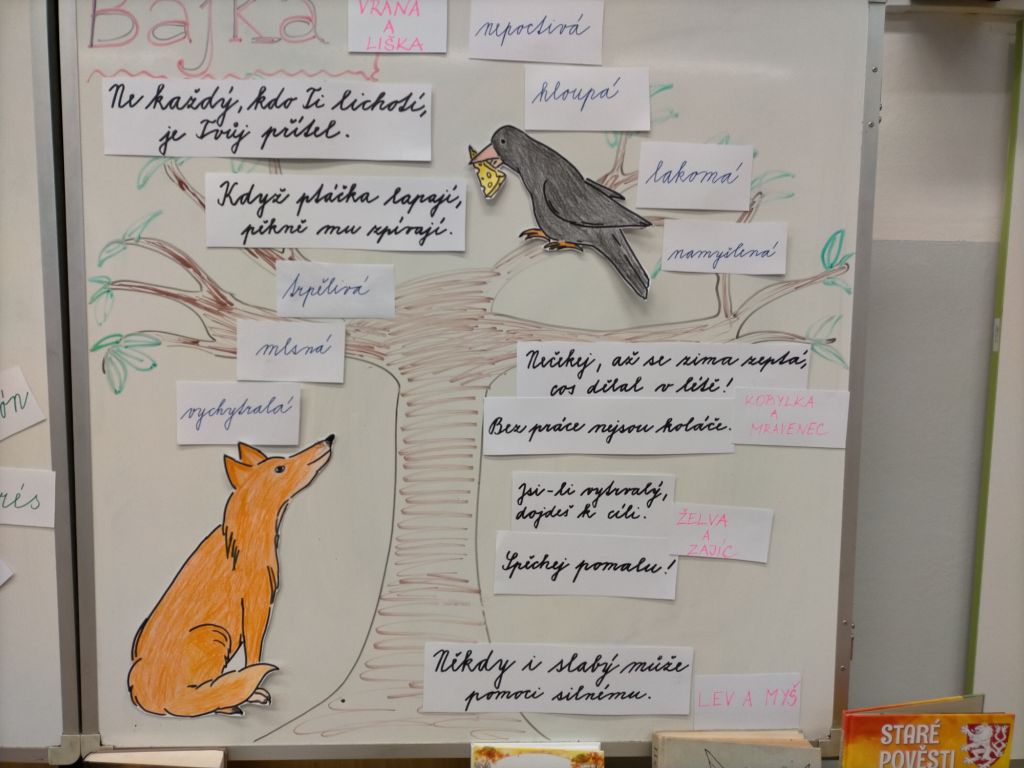 Bajka
VRÁNA
A
LIŠKA
nepoctivá
hloupá
Ne každý, kdo Ti lichotí,
je Tvůj přítel.
lakomá
Když ptáčka lapají,
pěkně mu zpívají.
namyšlená
trpělivá
mlsná
vychytralá
Nečekej, až se zima zeptá,
cos dělal v létě!
Bez práce nejsou koláče.
KOBYLKA
A
MRAVENEC
Jsi-li vytrvalý,
dojdeš k cíli.
ŽELVA
A
ZAJÍC
Spěchej pomalu!
Někdy i slabý může
pomoci silnému.
LEV A MYŠ
STARÉ
POVĚSTI